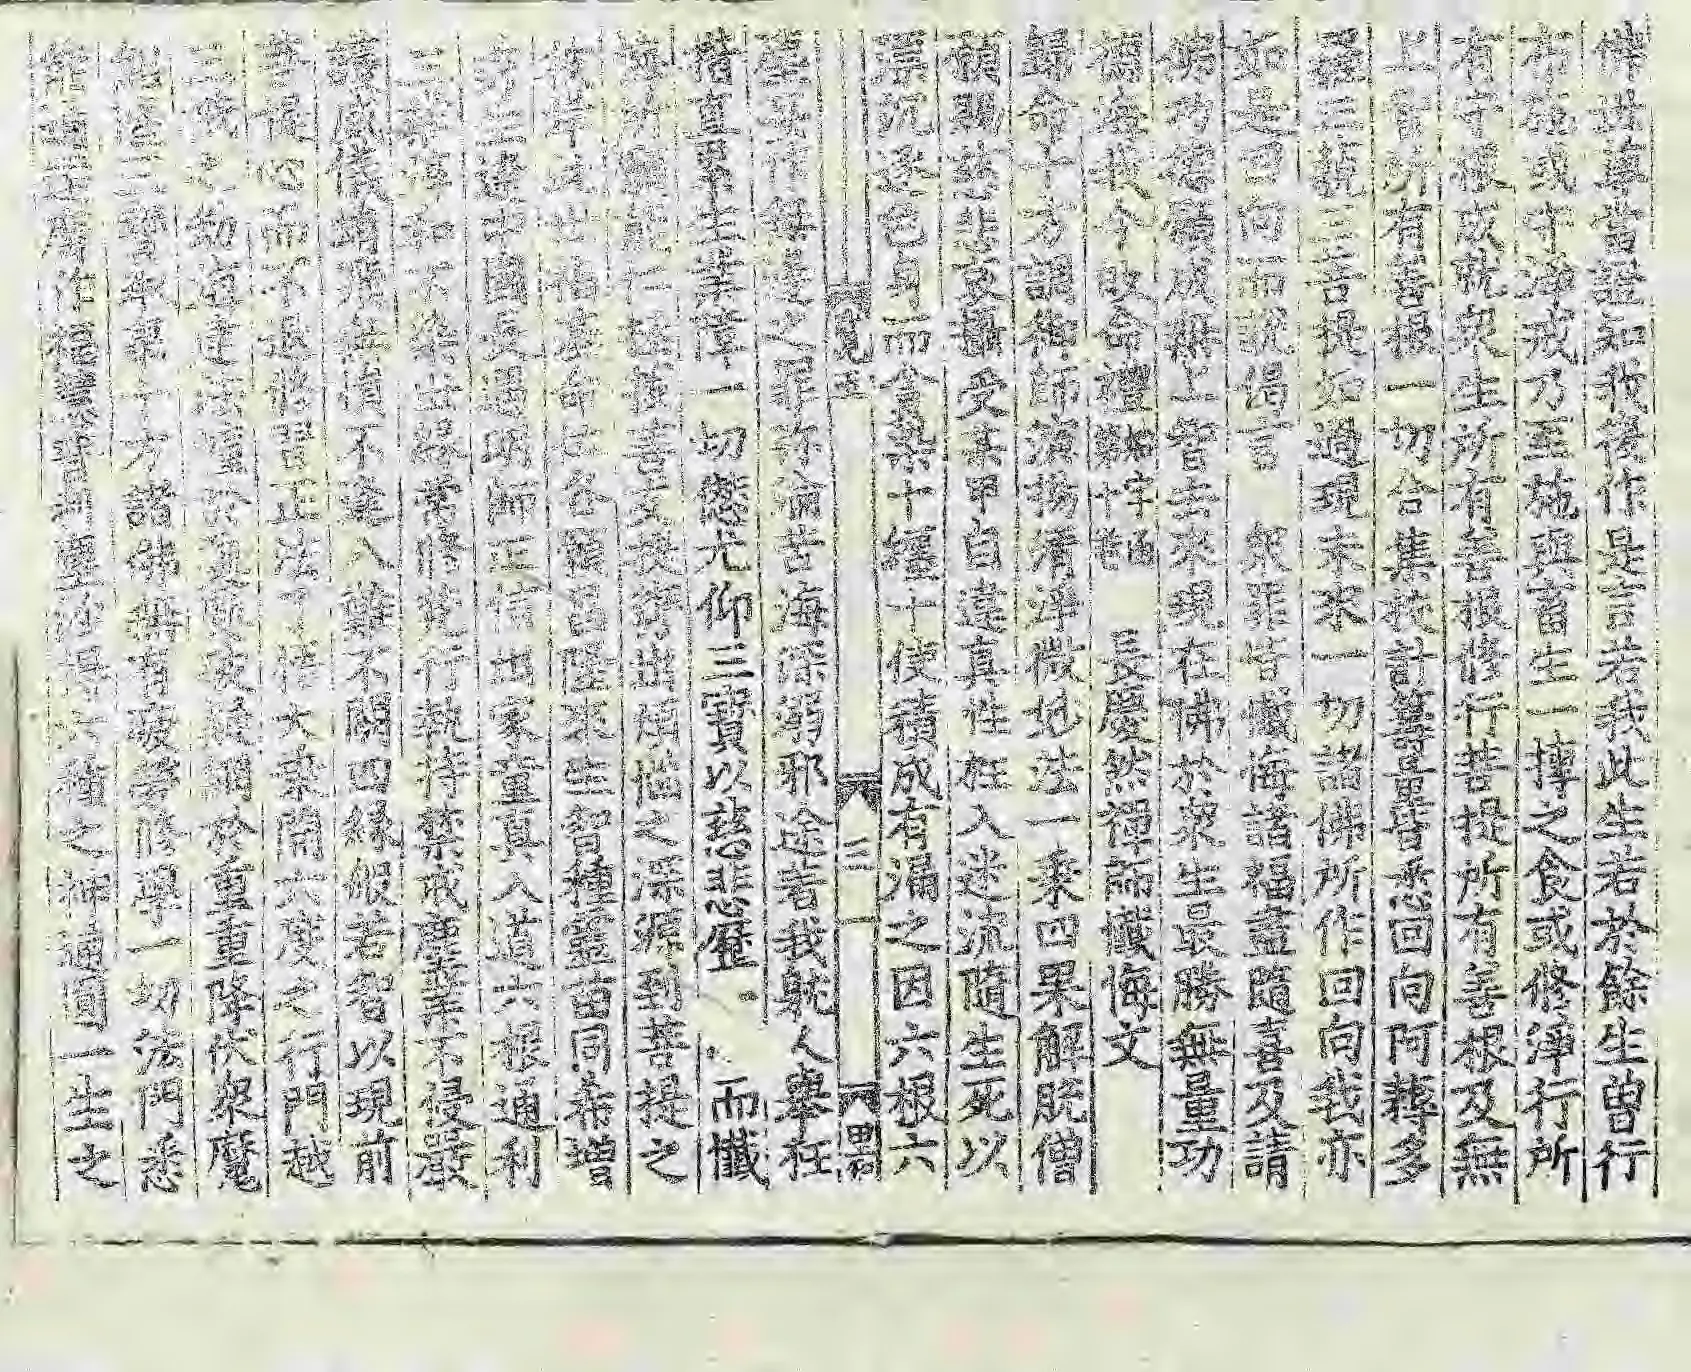 佛世尊當證知我復作是言若我此生若於餘生曾行
布施或守淨戒乃至施與畜生一摶之食或修淨行所
有善根成就眾生所有善根修行菩提所有善根及無
上智所有善根一切合集挍計籌量普悉回向阿耨多
羅三藐三菩提如過現未來一切諸佛所作回向我亦
如是回向而說偈言 眾罪皆懺悔諸福盡隨喜及請
佛功德願成無上智去來現在佛於眾生最勝無量功
德海我今敀命禮 長慶然禪師懺悔文
歸命十方調御師演揚清淨微妙法三乘四果解脫僧
願賜慈悲哀攝受某甲自違真性枉入迷流隨生死以
漂沉逐色身而貪染十纏十使積成有漏之因六根六
三
塵妄作無邊之罪迷淪苦海深溺邪途著我躭人舉枉
措直累生業障一切愆尤仰三寶以慈悲瀝 而懺
悔所願能仁拯拔善友提携出煩惱之深源到菩提之
彼岸此世福基命位各願昌隆來生智種靈苗同希增
秀生逢中國長遇明師正信出家童真入道六根通利
三業純和不染世緣常修梵行執持禁戒塵業不侵嚴
護威儀蜎飛無損不逢八難不闕四緣般若智以現前
菩提心而不退修習正法了悟大乘開六度之行門越
三祇之劫海建法幢於處處破疑網於重重降伏眾魔
紹隆三寶承事十方諸佛無有疲勞修學一切法門悉
皆通達廣作福慧普利塵沙得六種之神通圓一生之